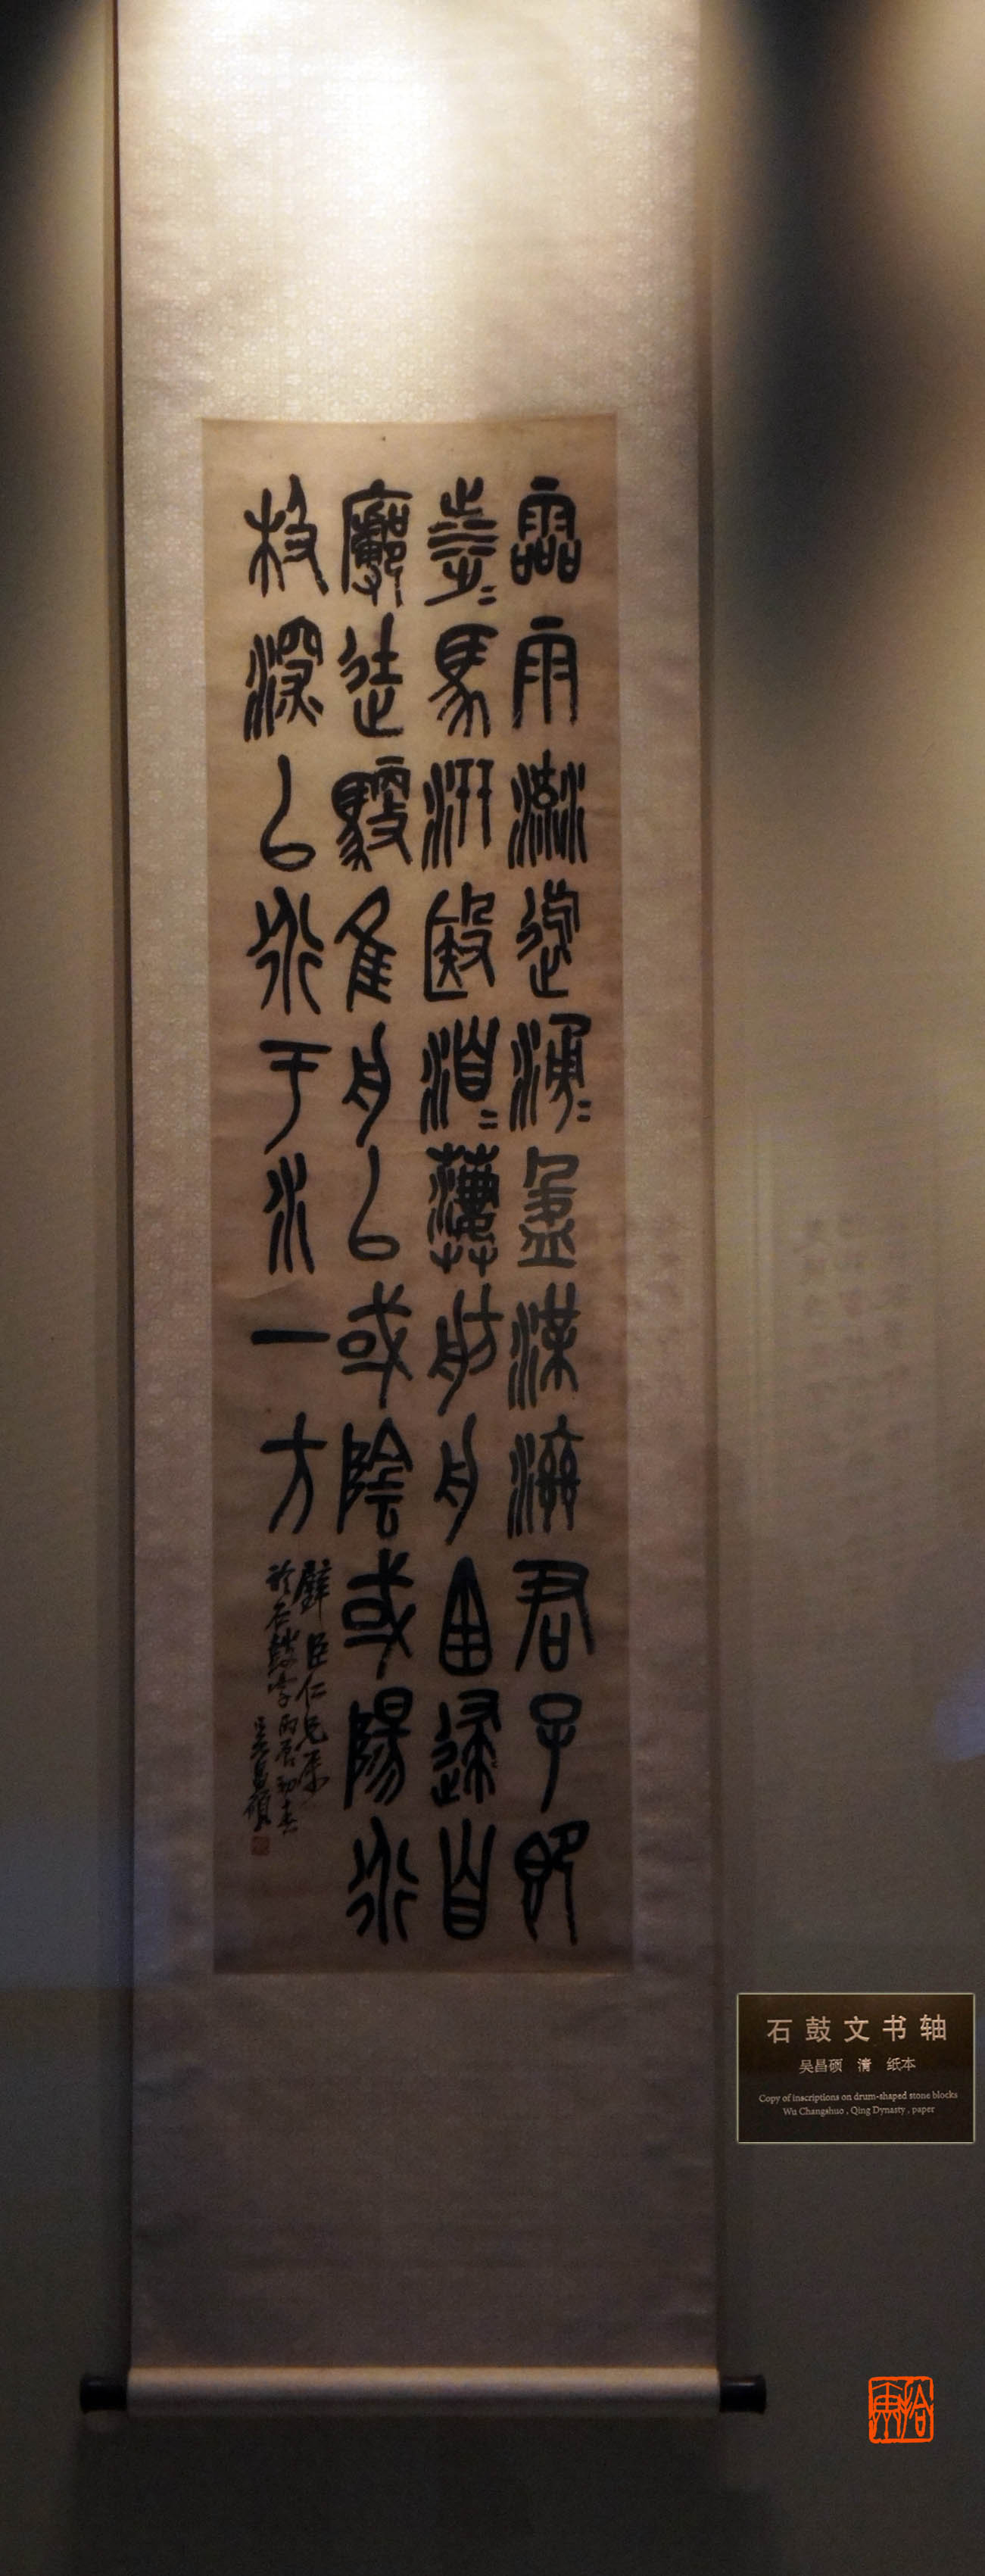 霝雨流迄湧=盈渫濟君子即
涉=馬汧殹洎=舫舟西逮自
廓徒隹舟以或陰或陽衍
极深以衍于水一方
臣仁兄屬
石鼓字丙辰初春
吳昌碩
石鼓文书轴
吴昌硕 清 纸本
Copy of inscriptions on drum-shaped stone blocks
Wu Changshuo , Qing Dynasty , paper